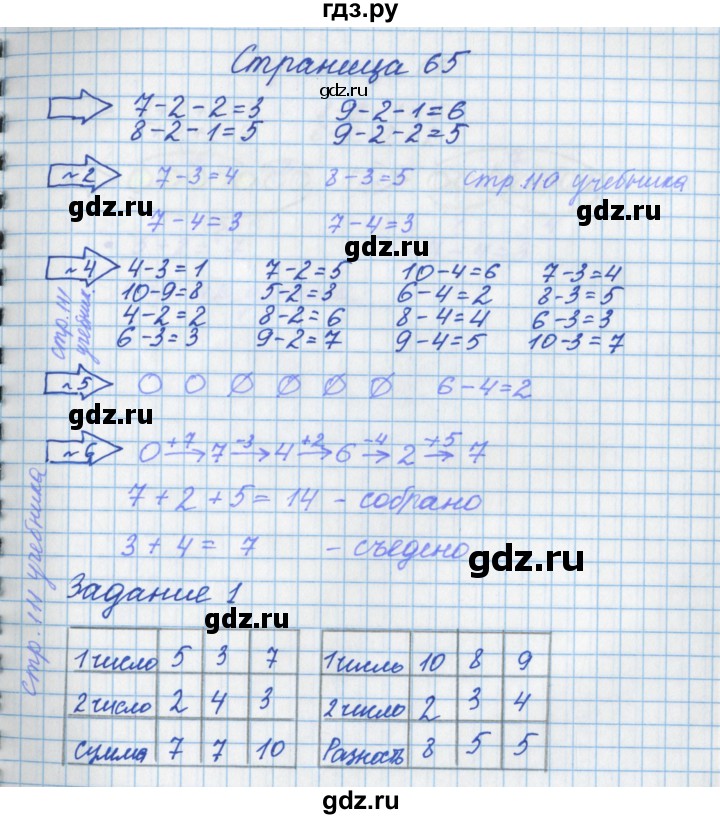 гдз.ру
Страница 65
gdz.ru
7-2-2=3 9-2-1=6
8-2-1=5 9-2-2=5
~2 7-3=4 8-3=5 стр.110 учебника
gdz.ru gdz.ru
7-4=3 7-4=3
gdz.ru gdz.ru
~4 4-3=1 7-2=5 10-4=6 7-3=4
10-9=8 5-2=3 6-4=2 8-3=5
4-2=2 8-2=6 8-4=4 6-3=3
6-3=3 9-2=7 9-4=5 10-3=7
стр.111 учебник
~5 0 0 Ø Ø Ø Ø 6-4=2
gdz.ru gdz.ru
~6 0 +7→ 7 -3→ 4 +2→ 6 -4→ 2 +5→ 7
7+2+5=14 - собрано
3+4=7 - съедено
gdz.ru
стр.111 учебника
Задание 1
gdz.ru
1 число 5 3 7 1число 10 8 9
2 число 2 4 3 2число 2 3 4
сумма 7 7 10 Разность 8 5 5
gdz.ru gdz.ru
gdz.ru